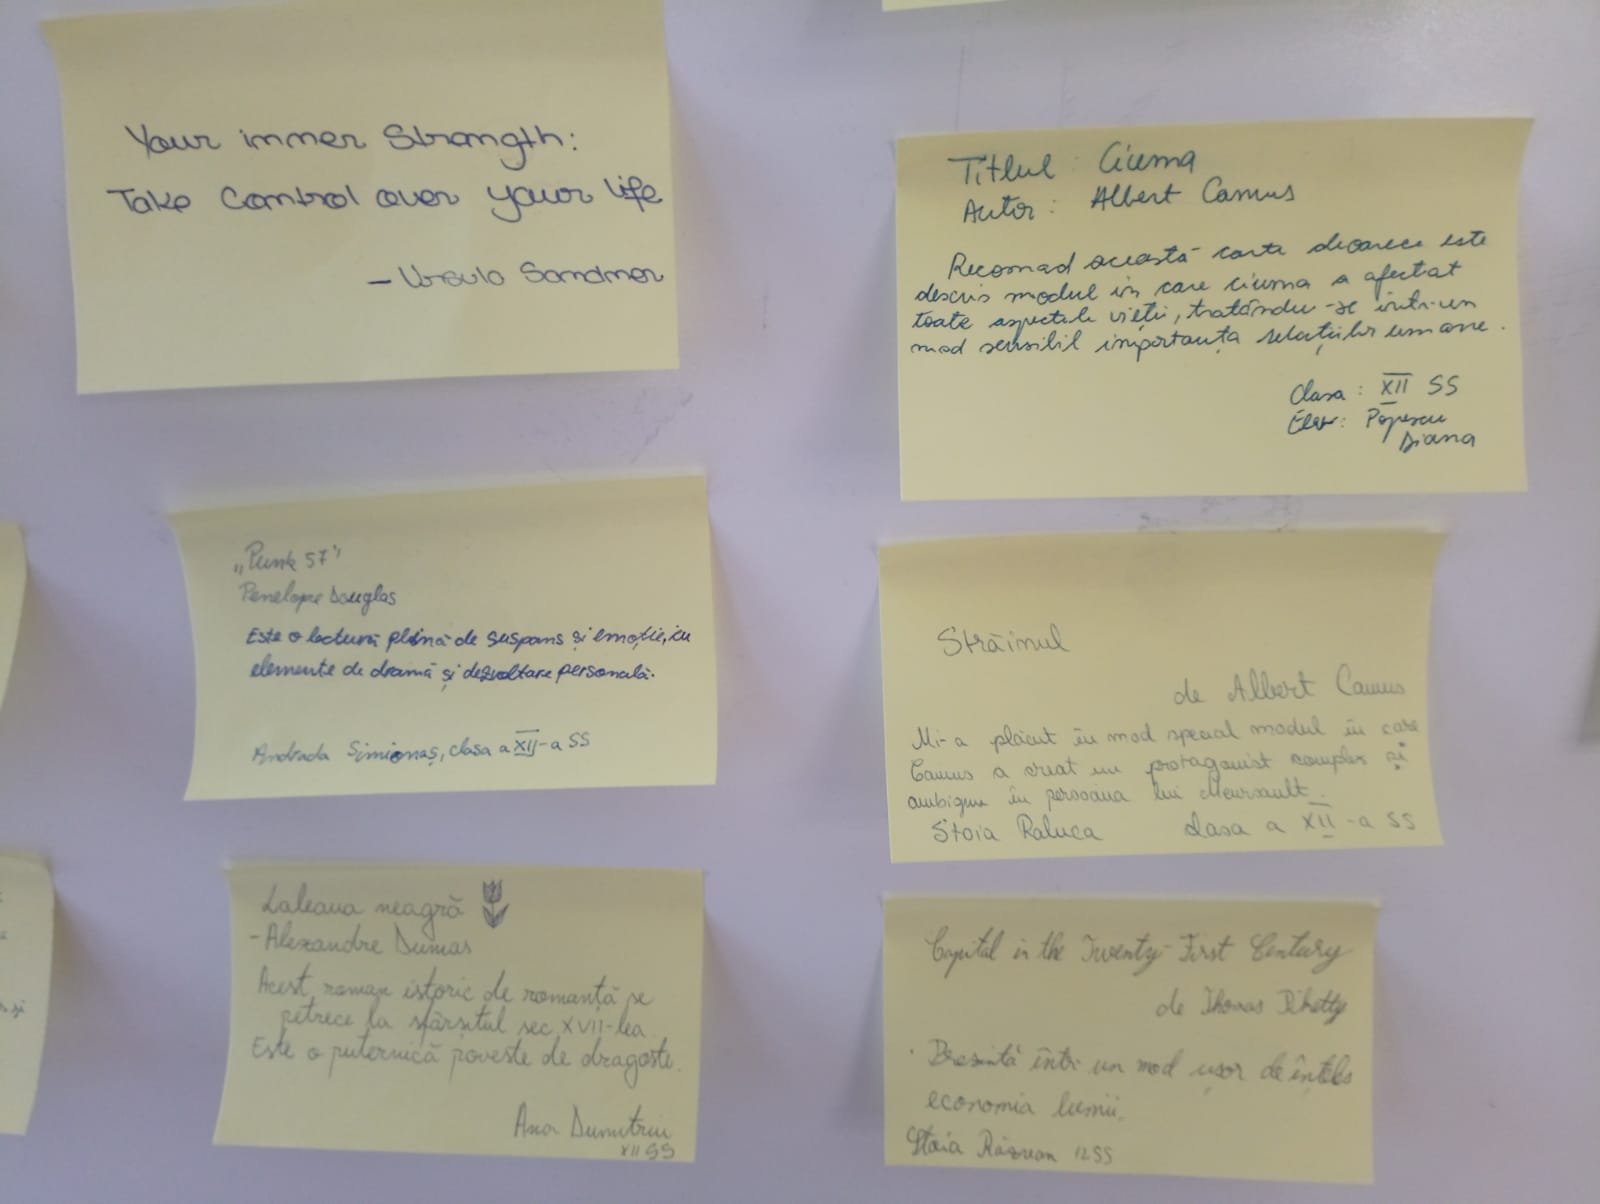 Your inner Strength:
Take Control over your life
- Ursula Sandner
Titlul : Ciuma
Autor : Albert Camus
Recomad această carte deoarece este
descris modul în care ciuma a afectat
toate aspectele vieții, tratându-se într-un
mod sensibil importanța relațiilor umane.
Clasa : XII SS
Elev: Popescu
Diana
„Punk 57"
Penelope Douglas
Este o lectură plină de suspans și emoție, cu
elemente de dramă și dezvoltare personală.
Andrada Simionaș, clasa a XII-a SS
Străinul
de Albert Camus
Mi-a plăcut în mod special modul în care
Camus a creat un protagonist complex și
ambiguu în persoana lui Meursault.
Stoia Raluca clasa a XII-a SS
Laleaua neagră
- Alexandre Dumas
Acest roman istoric de romanță se
petrece la sfârșitul sec XVII-lea.
Este o puternică poveste de dragoste.
Ana Dumitriu
XII SS
Capital in the Twenty-First Century
de Thomas Piketty
· Prezintă într-un mod ușor de înțeles
economia lumii.
Stoia Răzvan 12SS